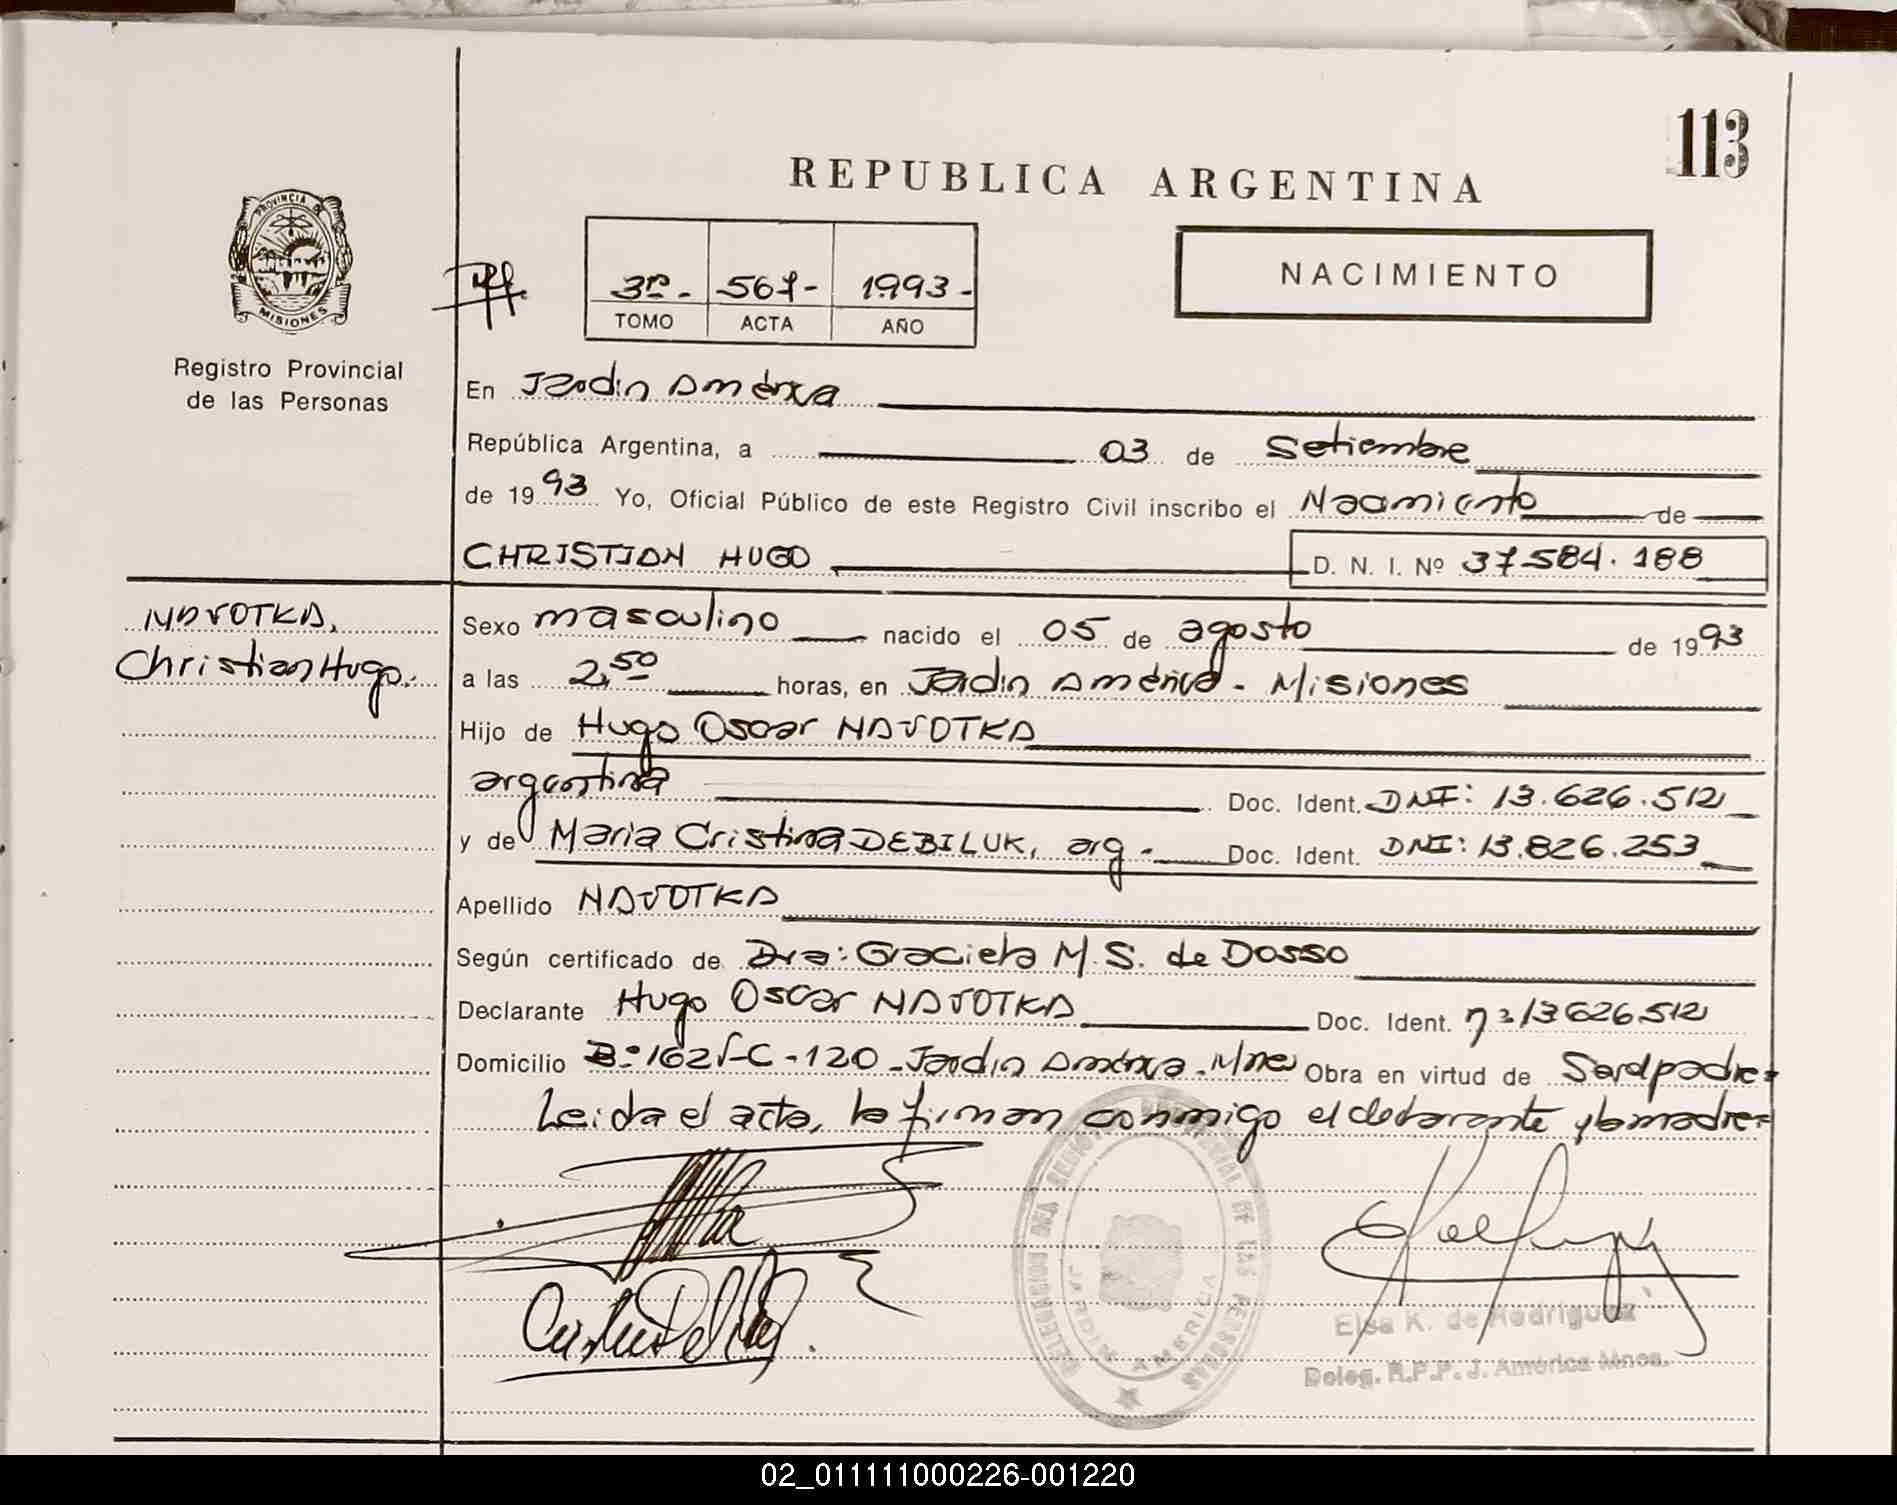 113
REPUBLICA ARGENTINA
PROVINCIA DE
MISIONES
Registro Provincial
de las Personas
NACIMIENTO
3ro.- 567- 1993-
TOMO ACTA AÑO
En Jardin América
República Argentina, a 03 de Setiembre
de 1993 Yo, Oficial Público de este Registro Civil inscribo el Nacimiento de
CHRISTIAN HUGO D. N. I. Nº 37584.188
NAVOTKA,
Christian Hugo.-
Sexo masculino nacido el 05 de agosto de 1993
a las 2,50 horas, en Jardin América - Misiones
Hijo de Hugo Oscar NAVOTKA
argentina Doc. Ident. DNI: 13.626.512
y de Maria Cristina DEBILUK, arg.- Doc. Ident. DNI: 13.826.253
Apellido NAVOTKA
Según certificado de Dra: Graciela M.S. de Dosso
Declarante Hugo Oscar NAVOTKA Doc. Ident. 13626512
Domicilio Jardin América - Mnes Obra en virtud de Ser el padre=
Leida el acta, la firman conmigo el declarante y la madre=
JARDIN AMERICA
Elsa K. de Rodriguez
Deleg. R.P.P. J. América Mnes.
02_011111000226-001220